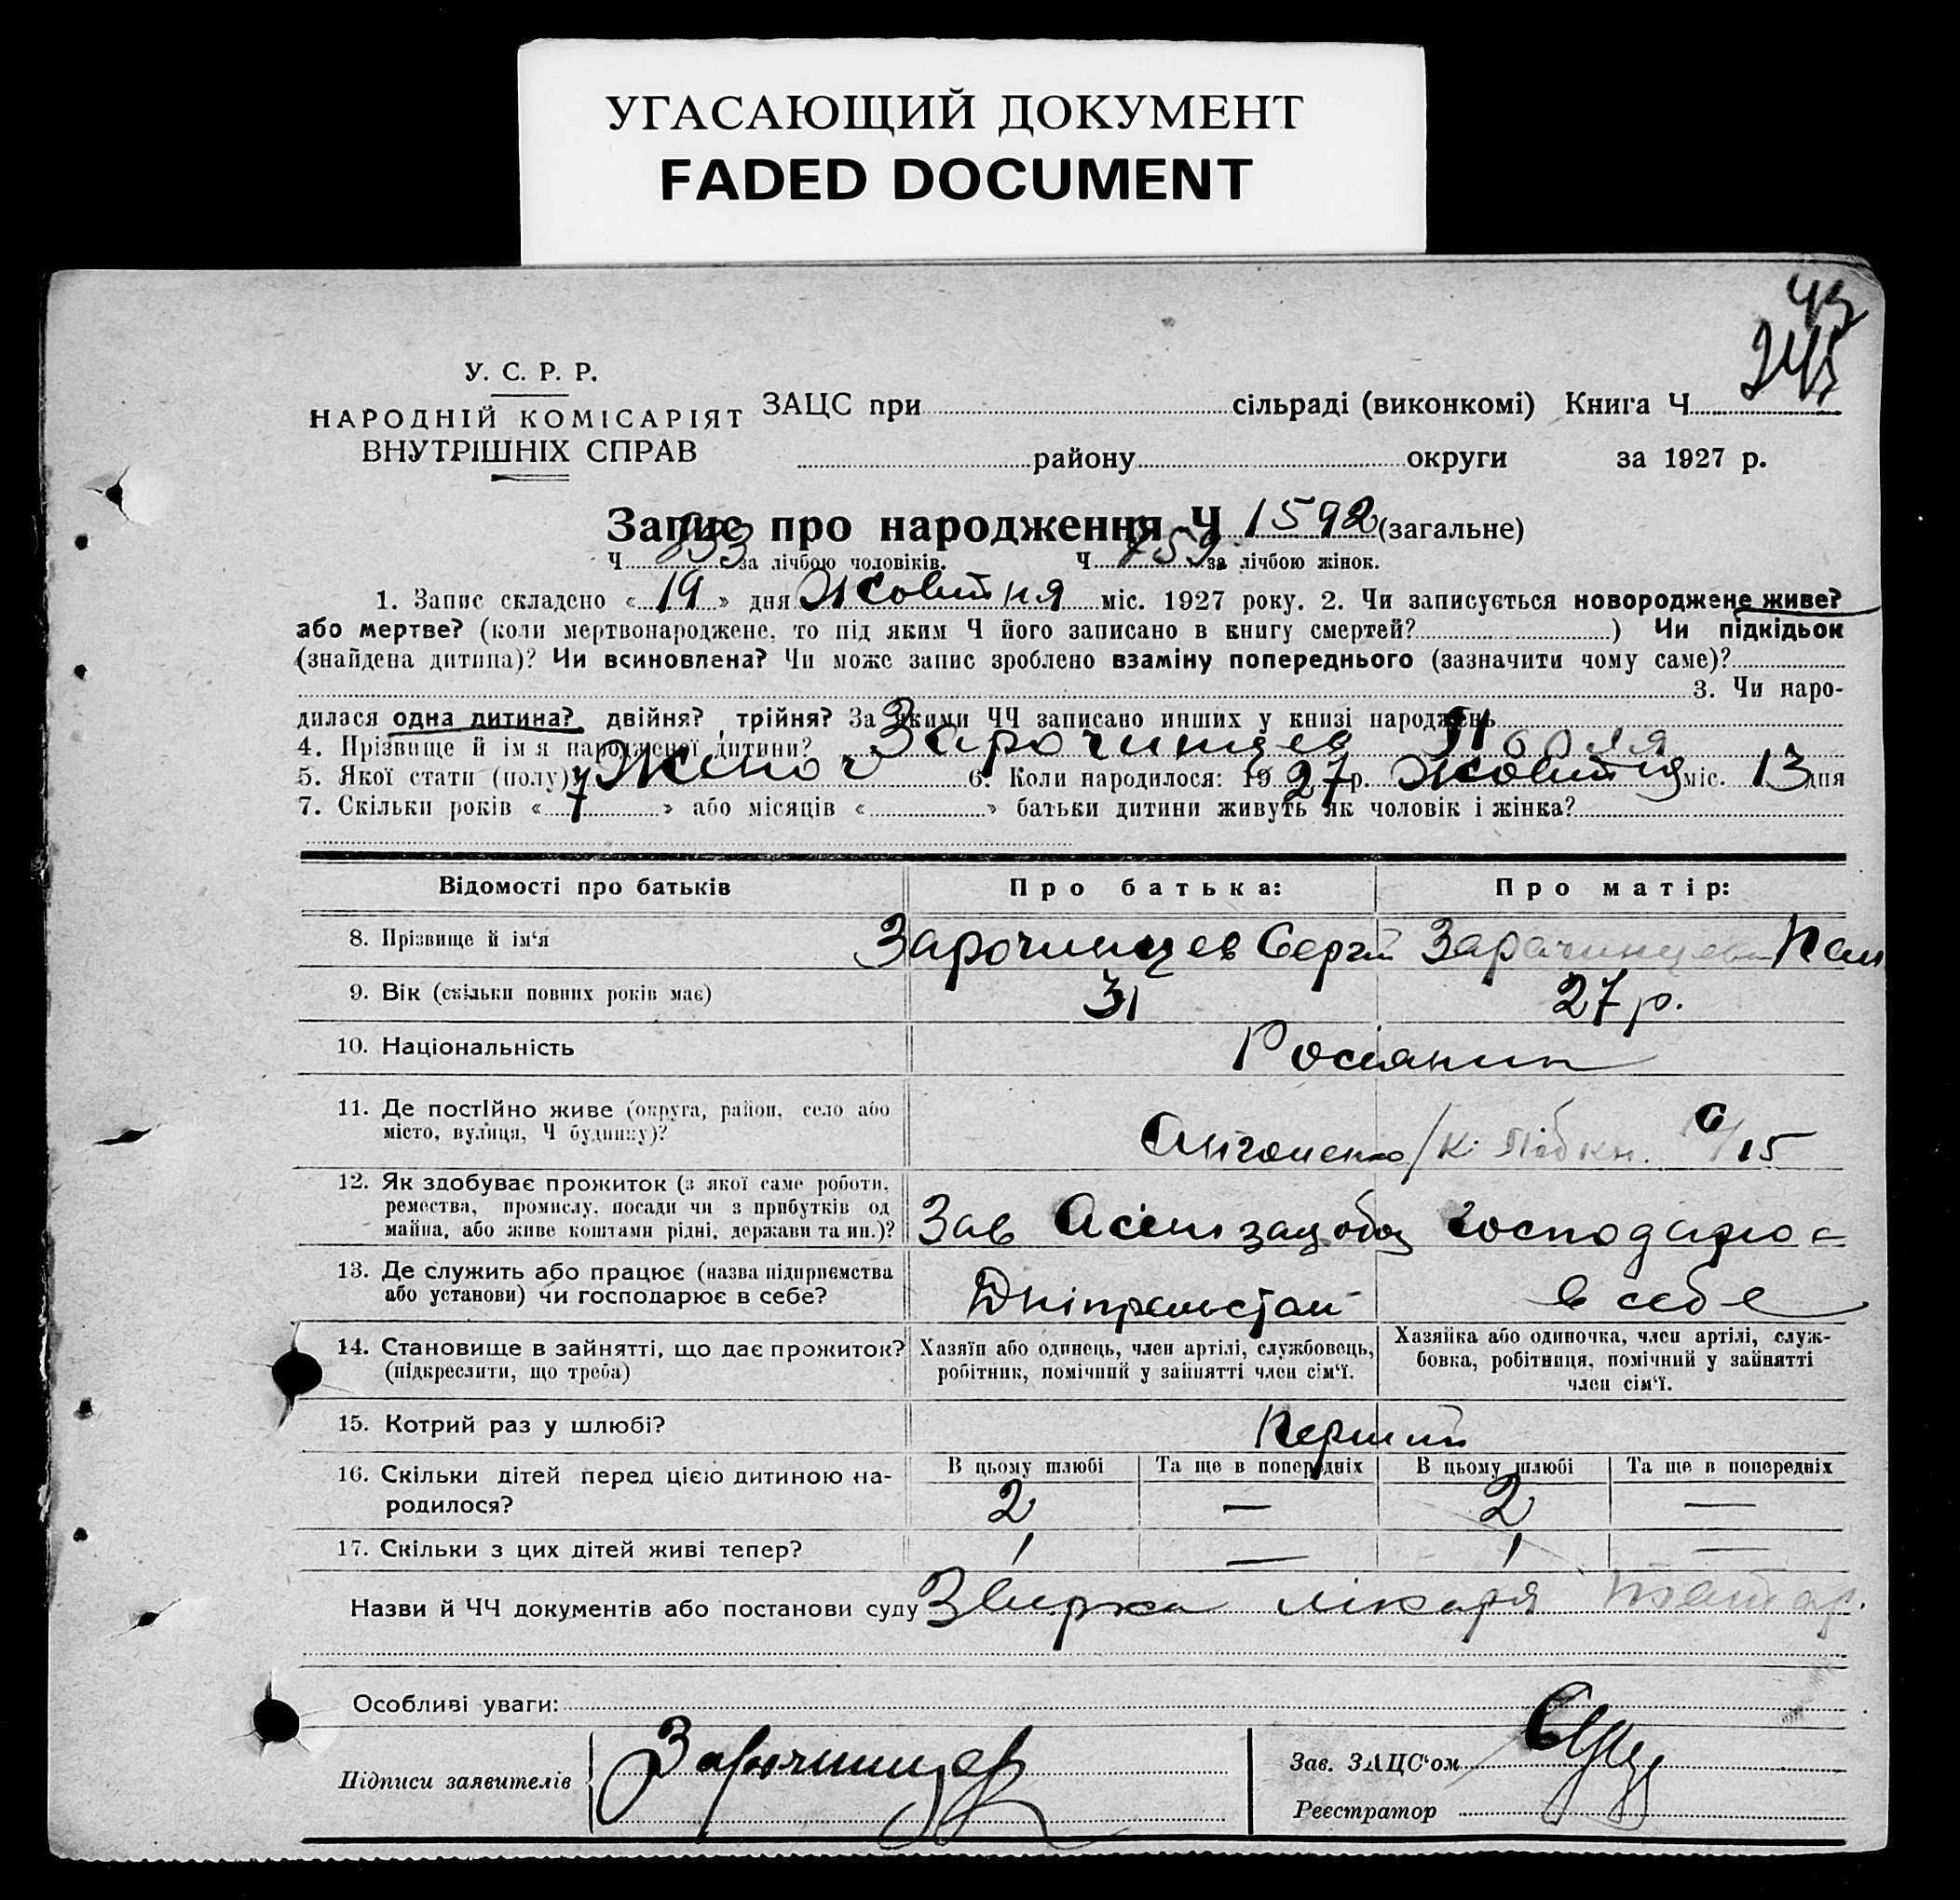 УГАСАЮЩИЙ ДОКУМЕНТ
FADED DOCUMENT
У. С. Р. Р.
НАРОДНІЙ КОМІСАРІЯТ
ВНУТРІШНІХ СПРАВ
ЗАЦС при сільраді (виконкомі) Книга Ч
району округи за 1927 р.
Запис про народження Ч 1592 (загальне)
Ч 833 за лічбою чоловіків. Ч 759 за лічбою жінок.
1. Запис складено « 19 » дня Жовтня міс. 1927 року. 2. Чи записується новороджене живе?
або мертве? (коли мертвонароджене, то під яким Ч його записано в книгу смертей? ) Чи підкідьок
(знайдена дитина)? Чи всиновлена? Чи може запис зроблено взаміну попереднього (зазначити чому саме)?
3. Чи наро-
дилася одна дитина? двійня? трійня? За якими ЧЧ записано инших у книзі народжень
4. Прізвище й ім'я народженої дитини? Зарочинцев
5. Якої стати (полу)? Жіноч 6. Коли народилося: 1927 р. Жовтня міс. 13 дня
7. Скільки років « 7 » або місяців « » батьки дитини живуть як чоловік і жінка?
Відомості про батьків Про батька: Про матір:
8. Прізвище й ім'я Зарочинцев Сергій Зарочинцева
9. Вік (скільки повних років має) 31 27 р.
10. Національність Росіянин
11. Де постійно живе (округа, район, село або
місто, вулиця, Ч будинку)? 15
12. Як здобуває прожиток (з якої саме роботи,
ремества, промислу, посади чи з прибутків од
майна, або живе коштами рідні, держави та ин.)? Зав Асенізац обоз господарює
13. Де служить або працює (назва підприємства
або установи) чи господарює в себе? в себе
14. Становище в зайнятті, що дає прожиток?
(підкреслити, що треба)
Хазяїн або одинець, член артілі, службовець,
робітник, помічний у зайнятті член сім'ї.
Хазяйка або одиночка, член артілі, служ-
бовка, робітниця, помічний у зайнятті
член сім'ї.
15. Котрий раз у шлюбі? Перший
16. Скільки дітей перед цією дитиною на-
родилося?
В цьому шлюбі Та ще в попередніх В цьому шлюбі Та ще в попередніх
2 — 2 —
17. Скільки з цих дітей живі тепер? 1 — 1 —
Назви й ЧЧ документів або постанови суду лікаря
Особливі уваги:
Підписи заявителів Зарочинцев
Зав. ЗАЦС'ом
Реєстратор